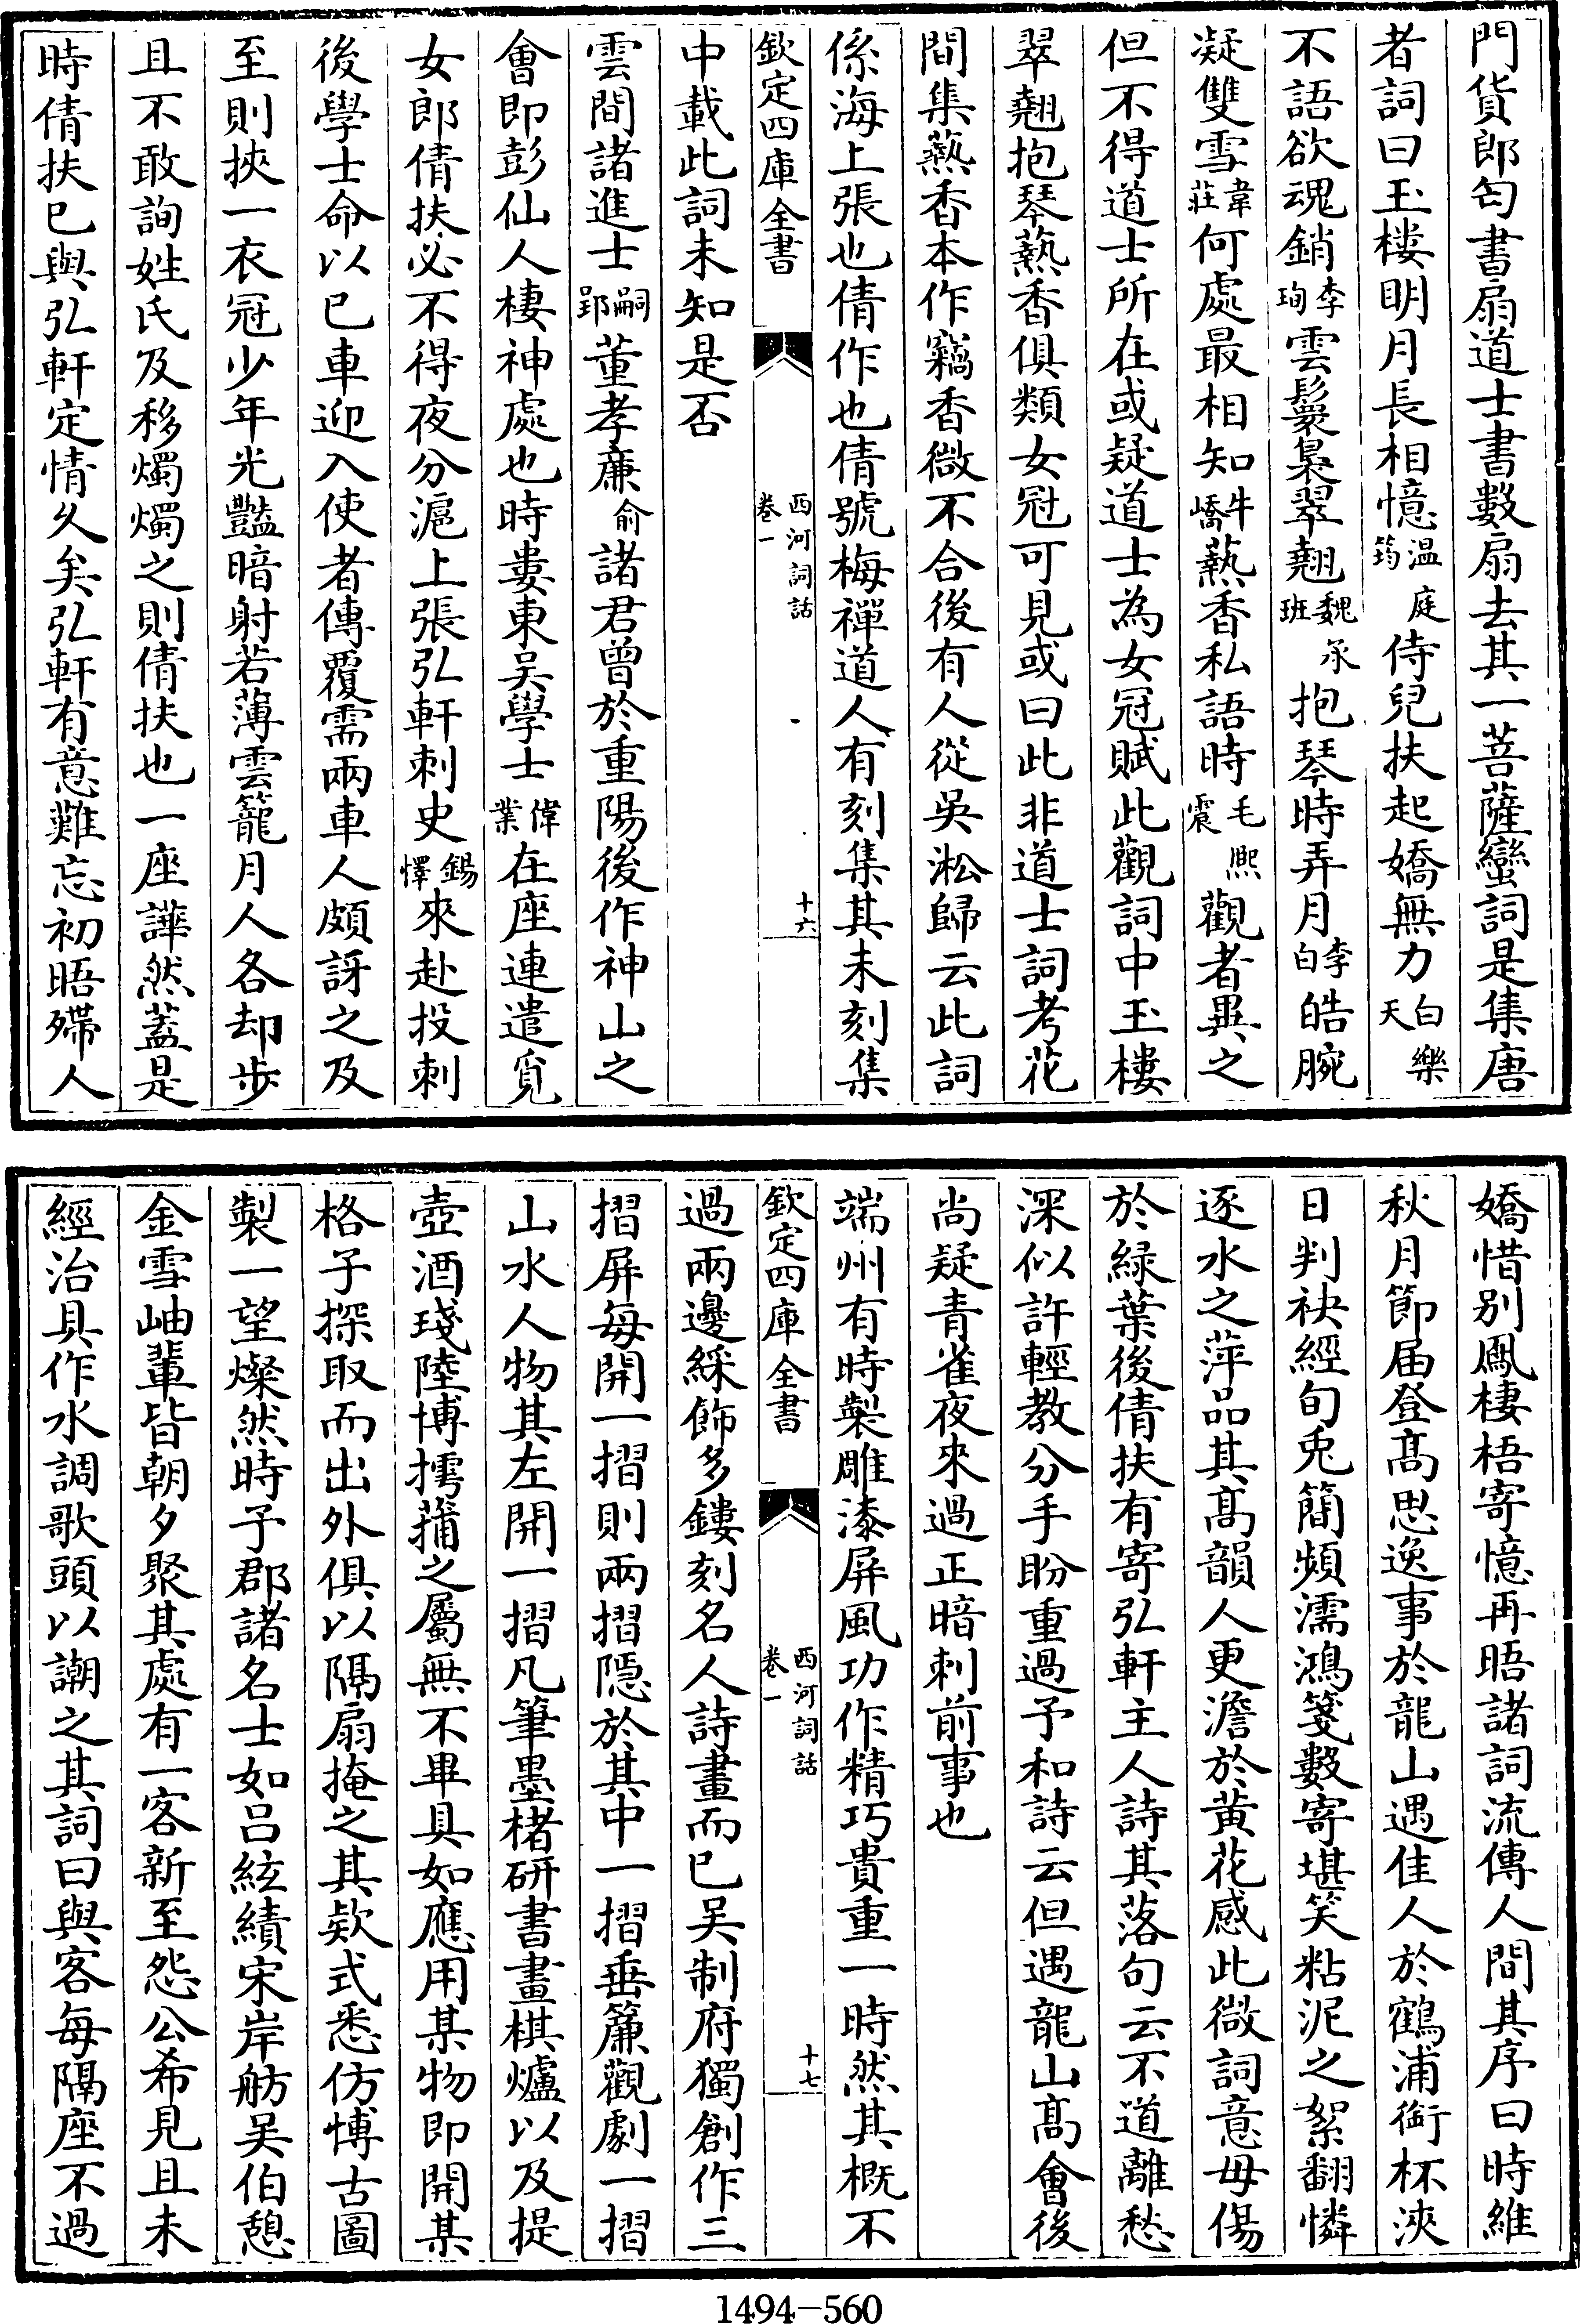 門貨郎匄書扇道士書數扇去其一菩薩蠻詞是集唐
者詞曰玉樓明月長相憶溫庭筠侍兒扶起嬌無力白樂天
不語欲魂銷李珣雲鬟裊翠翹魏承班抱琴時弄月李白皓腕
凝雙雪韋莊何處最相知牛嶠爇香私語時毛熙震觀者異之
但不得道士所在或疑道士為女冠賦此觀詞中玉樓
翠翹抱琴爇香俱類女冠可見或曰此非道士詞考花
間集爇香本作竊香微不合後有人從吳淞歸云此詞
係海上張也倩作也倩號梅禪道人有刻集其未刻集
欽定四庫全書 西河詞話 卷一 十六
中載此詞未知是否
雲間諸進士嗣郢董孝廉俞諸君曾於重陽後作神山之
會即彭仙人棲神處也時婁東吳學士偉業在座連遣覓
女郎倩扶必不得夜分滬上張弘軒刺史錫懌來赴投刺
後學士命以己車迎入使者傳覆需兩車人頗訝之及
至則挾一衣冠少年光豔暗射若薄雲籠月人各却步
且不敢詢姓氏及移燭燭之則倩扶也一座譁然蓋是
時倩扶已與弘軒定情久矣弘軒有意難忘初晤殢人
嬌惜別鳳棲梧寄憶再晤諸詞流傳人間其序曰時維
秋月節届登高思逸事於龍山遇佳人於鶴浦銜杯浹
日判袂經旬兎簡頻濡鴻箋數寄堪笑粘泥之絮翻憐
逐水之萍品其高韻人更澹於黃花感此微詞意毋傷
於綠葉後倩扶有寄弘軒主人詩其落句云不道離愁
深似許輕教分手盼重過予和詩云但遇龍山高會後
尚疑青雀夜來過正暗刺前事也
端州有時製雕漆屏風功作精巧貴重一時然其概不
欽定四庫全書 西河詞話 卷一 十七
過兩邊綵飾多鏤刻名人詩畫而已吳制府獨創作三
摺屏每開一摺則兩摺隱於其中一摺垂簾觀劇一摺
山水人物其左開一摺凡筆墨楮研書畫棋爐以及提
壺酒琖陸博摴蒱之屬無不畢具如應用某物即開某
格子探取而出外俱以隔扇掩之其欵式悉仿博古圖
製一望燦然時予郡諸名士如呂絃績宋岸舫吳伯憩
金雪岫輩皆朝夕聚其處有一客新至怨公希見且未
經治具作水調歌頭以謿之其詞曰與客每隔座不過
1494—560